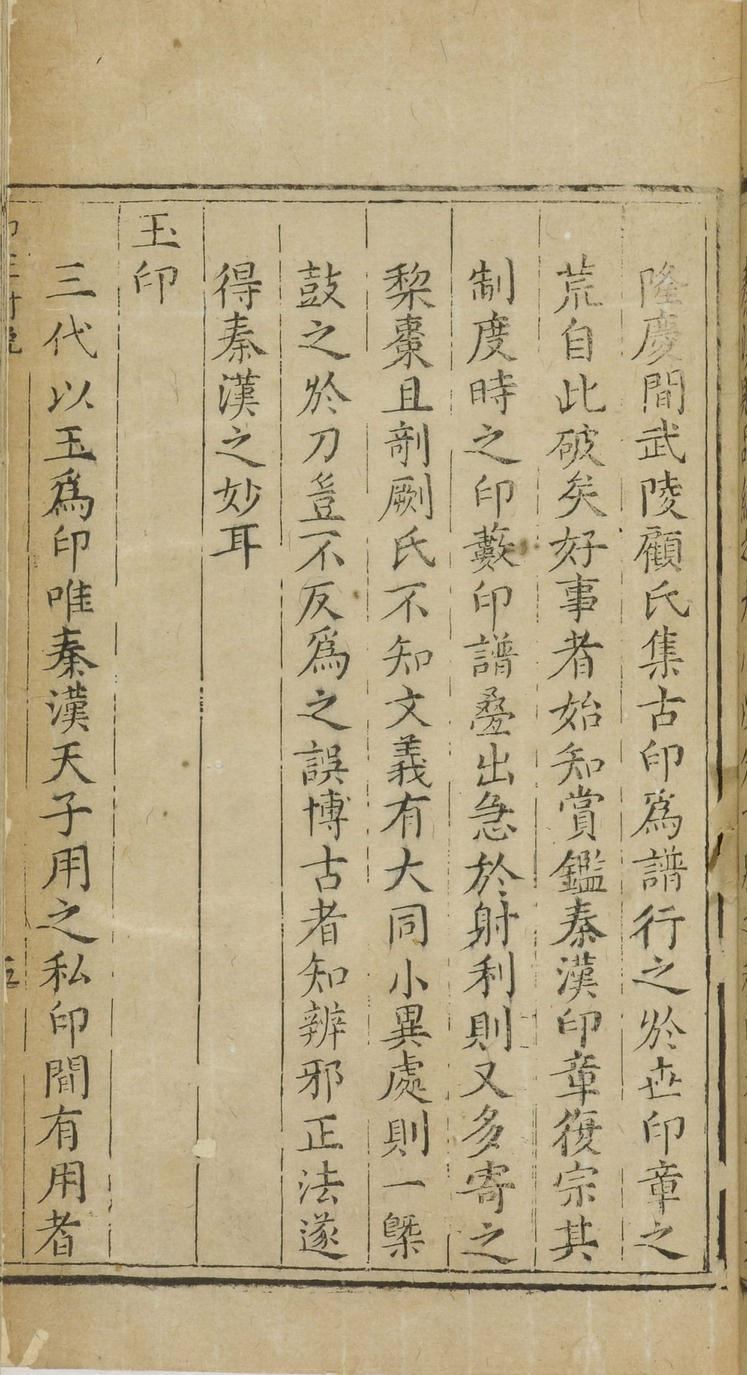 隆慶間武陵顧氏集古印爲譜行之於世印章之
荒自此破矣好事者始知賞鑑秦漢印章復宗其
制度時之印藪印譜疊出急於射利則又多寄之
棃棗且剞劂氏不知文義有大同小異處則一槩
鼓之於刀豈不反爲之誤博古者知辨邪正法遂
得秦漢之妙耳
玉印
三代以玉爲印唯秦漢天子用之私印間有用者